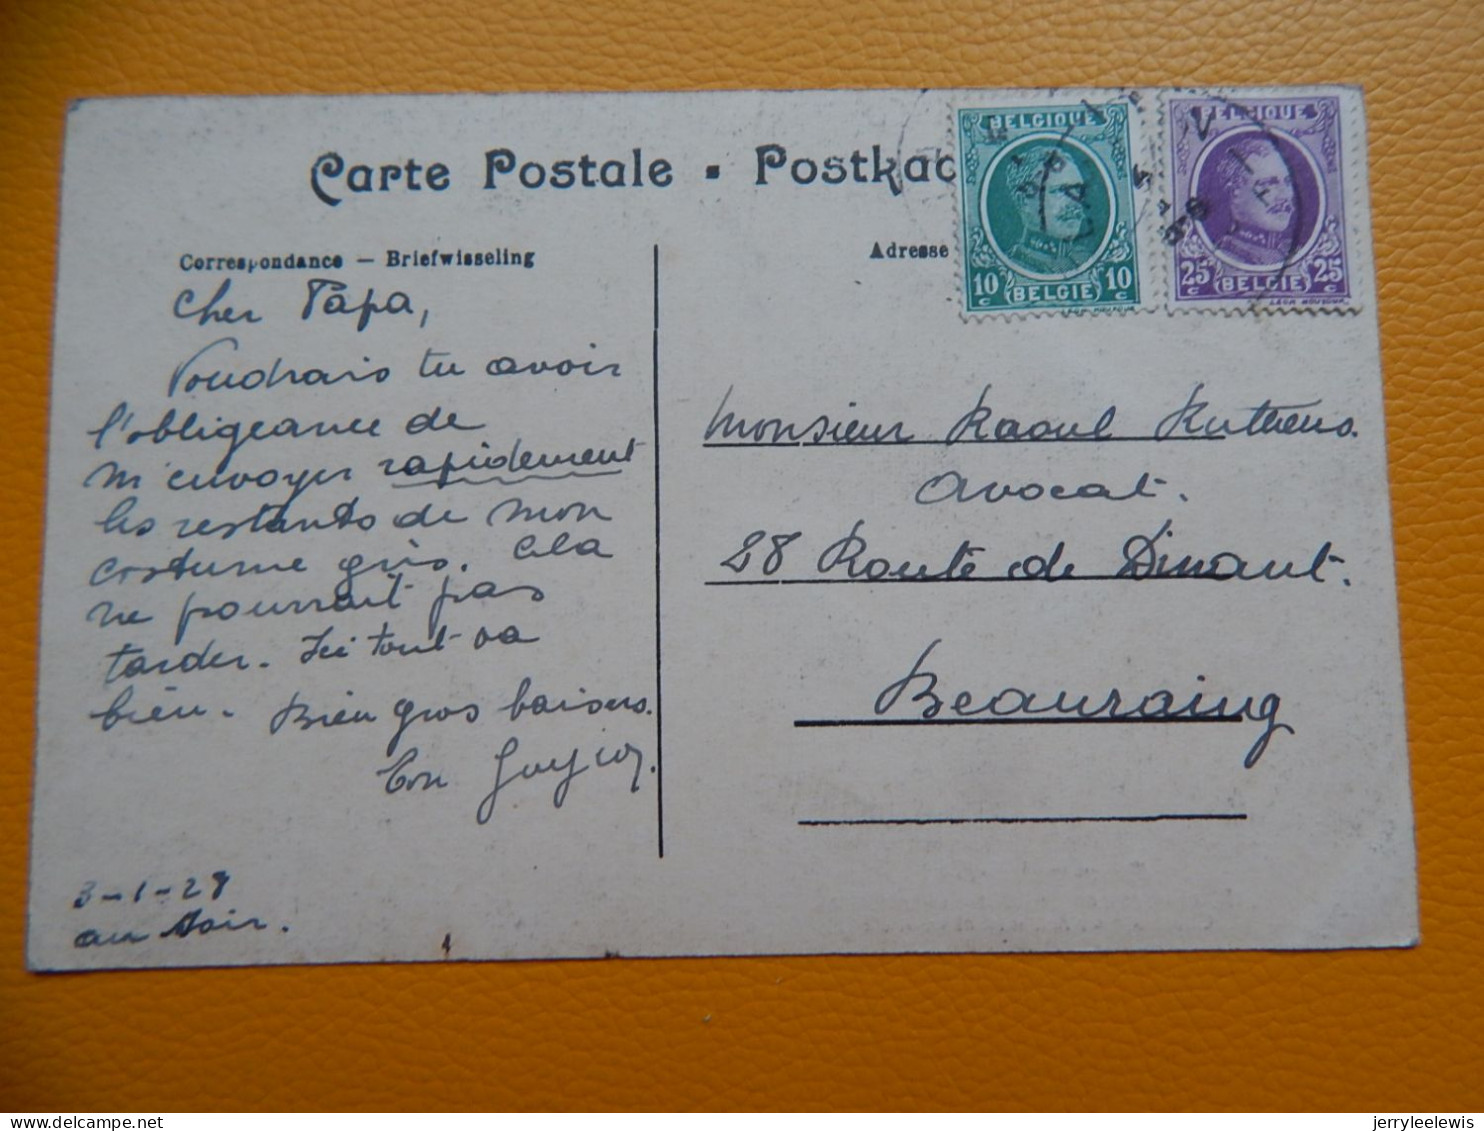 Carte Postale - Postkaa
Correspondance — Briefwisseling
Adresse
BELGIQUE
10 10
c c
BELGIE
BELGIQUE
25 25
c c
BELGIE
Cher Papa,
Voudrais tu avoir
l'obligeance de
m'envoyer rapidement
les restants de mon
costume gris. Cela
ne pourrait pas
tarder. Ici tout va
bien. Bien gros baisers.
Ton
3-1-28
au soir.
Monsieur Raoul
Avocat.
28 Route de Dinant.
Beauraing
jerryleelewis